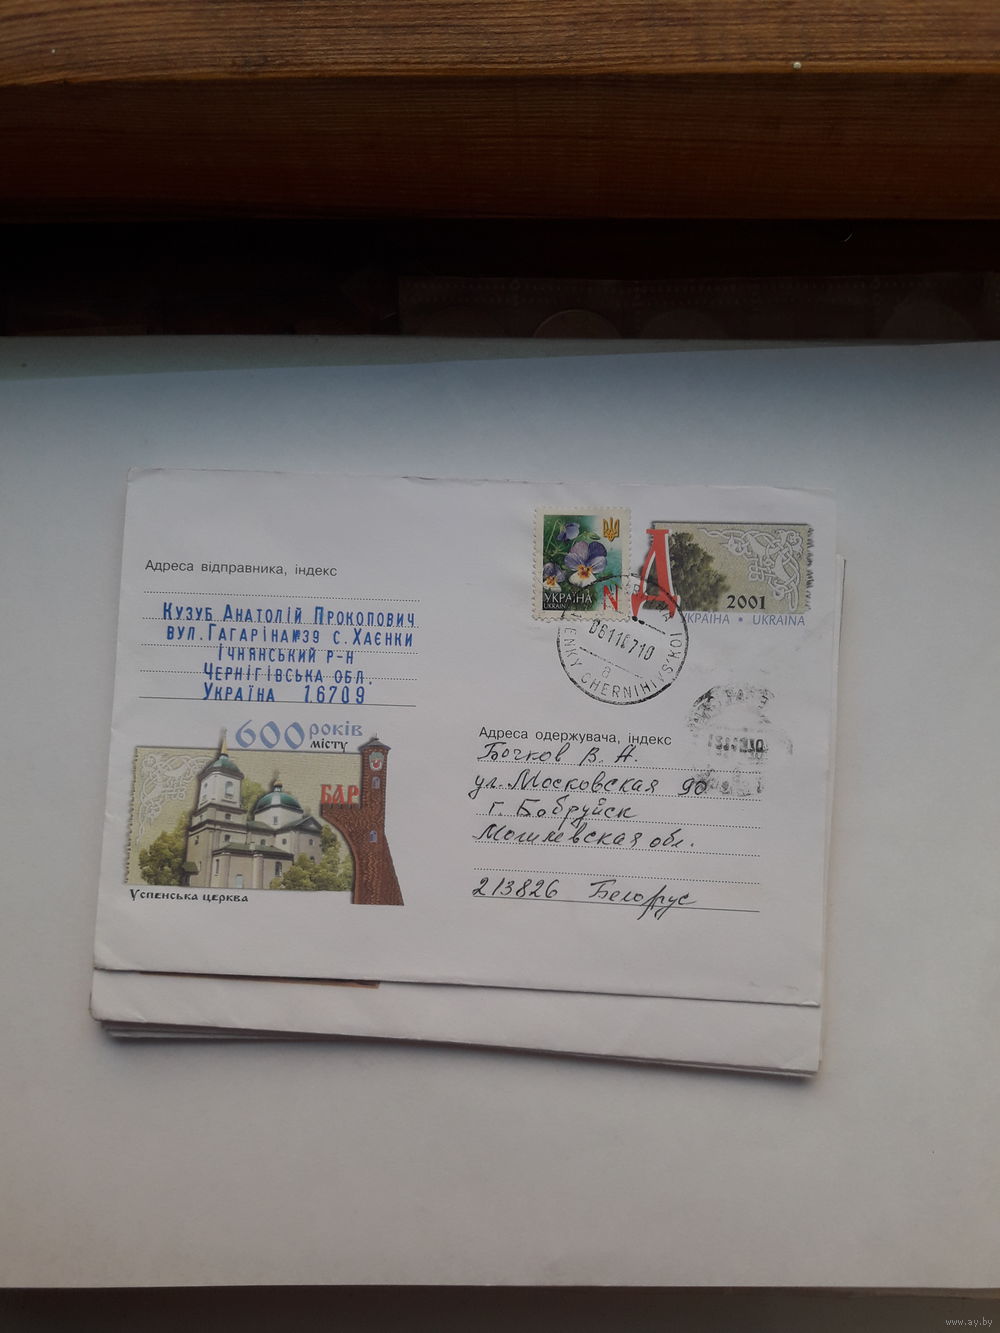 Адреса відправника, індекс
Кузуб Анатолій Прокопович
вул. Гагаріна №39 с. Хаєнки
Ічнянський р-н
Чернігівська обл.
Україна 16709
600 років
місту
БАР
Успенська церква
УКРАЇНА
UKRAINA
N
Д
2001
УКРАЇНА • UKRAINA
06110710
а
CHERNIHIVS/KOI
Адреса одержувача, індекс
Бочков В. А.
ул. Московская 90
г. Бобруйск
Могилевская обл.
213826 Белорус
www.ay.by